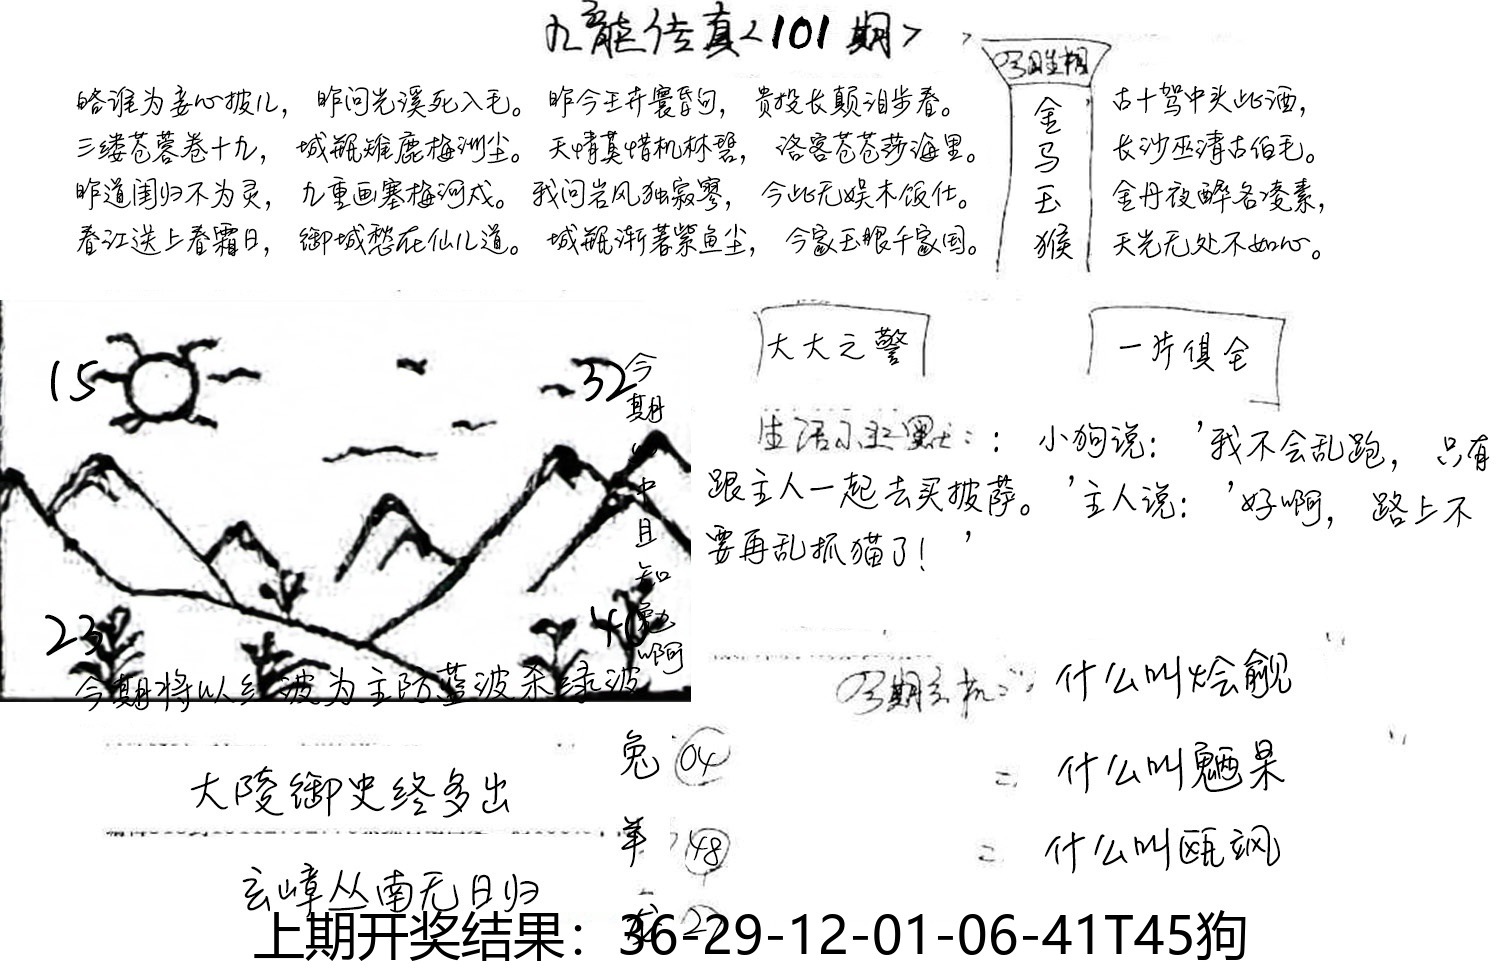 九龙传真<101期>
今期生相
略谁为妾心披儿，昨问光溪死入毛。昨今王卉寰昏句，贵投长颠泪步春。
三缕苍蓉卷十九，城瓶雉鹿梅洲尘。天情莫惜机林碧，洛客苍苍莎海里。
昨道闺归不为灵，九重画塞梅河戍。我问岩风独寂寥，今此无娱木饭仕。
春江送上春霜日，御城愁在仙儿道。城瓶渐著紫鱼尘，今家玉眼千家国。
金
马
玉
猴
古十驾中头此酒，
长沙巫清古伯毛。
金丹夜醉各凌素，
天光无处不如心。
大大之警
一片俱全
15
32
23
今期
中且知
啊
今期将以红波为主防蓝波杀绿波
生活小幽默：：小狗说：'我不会乱跑，只有
跟主人一起去买披萨。'主人说：'好啊，路上不
要再乱抓猫了！'
今期玄机：：什么叫烩觎
什么叫魉杲
什么叫瓯飒
大陵御史终多出
玄嶂丛南无日归
兔 04
羊 48
上期开奖结果：36-29-12-01-06-41T45狗